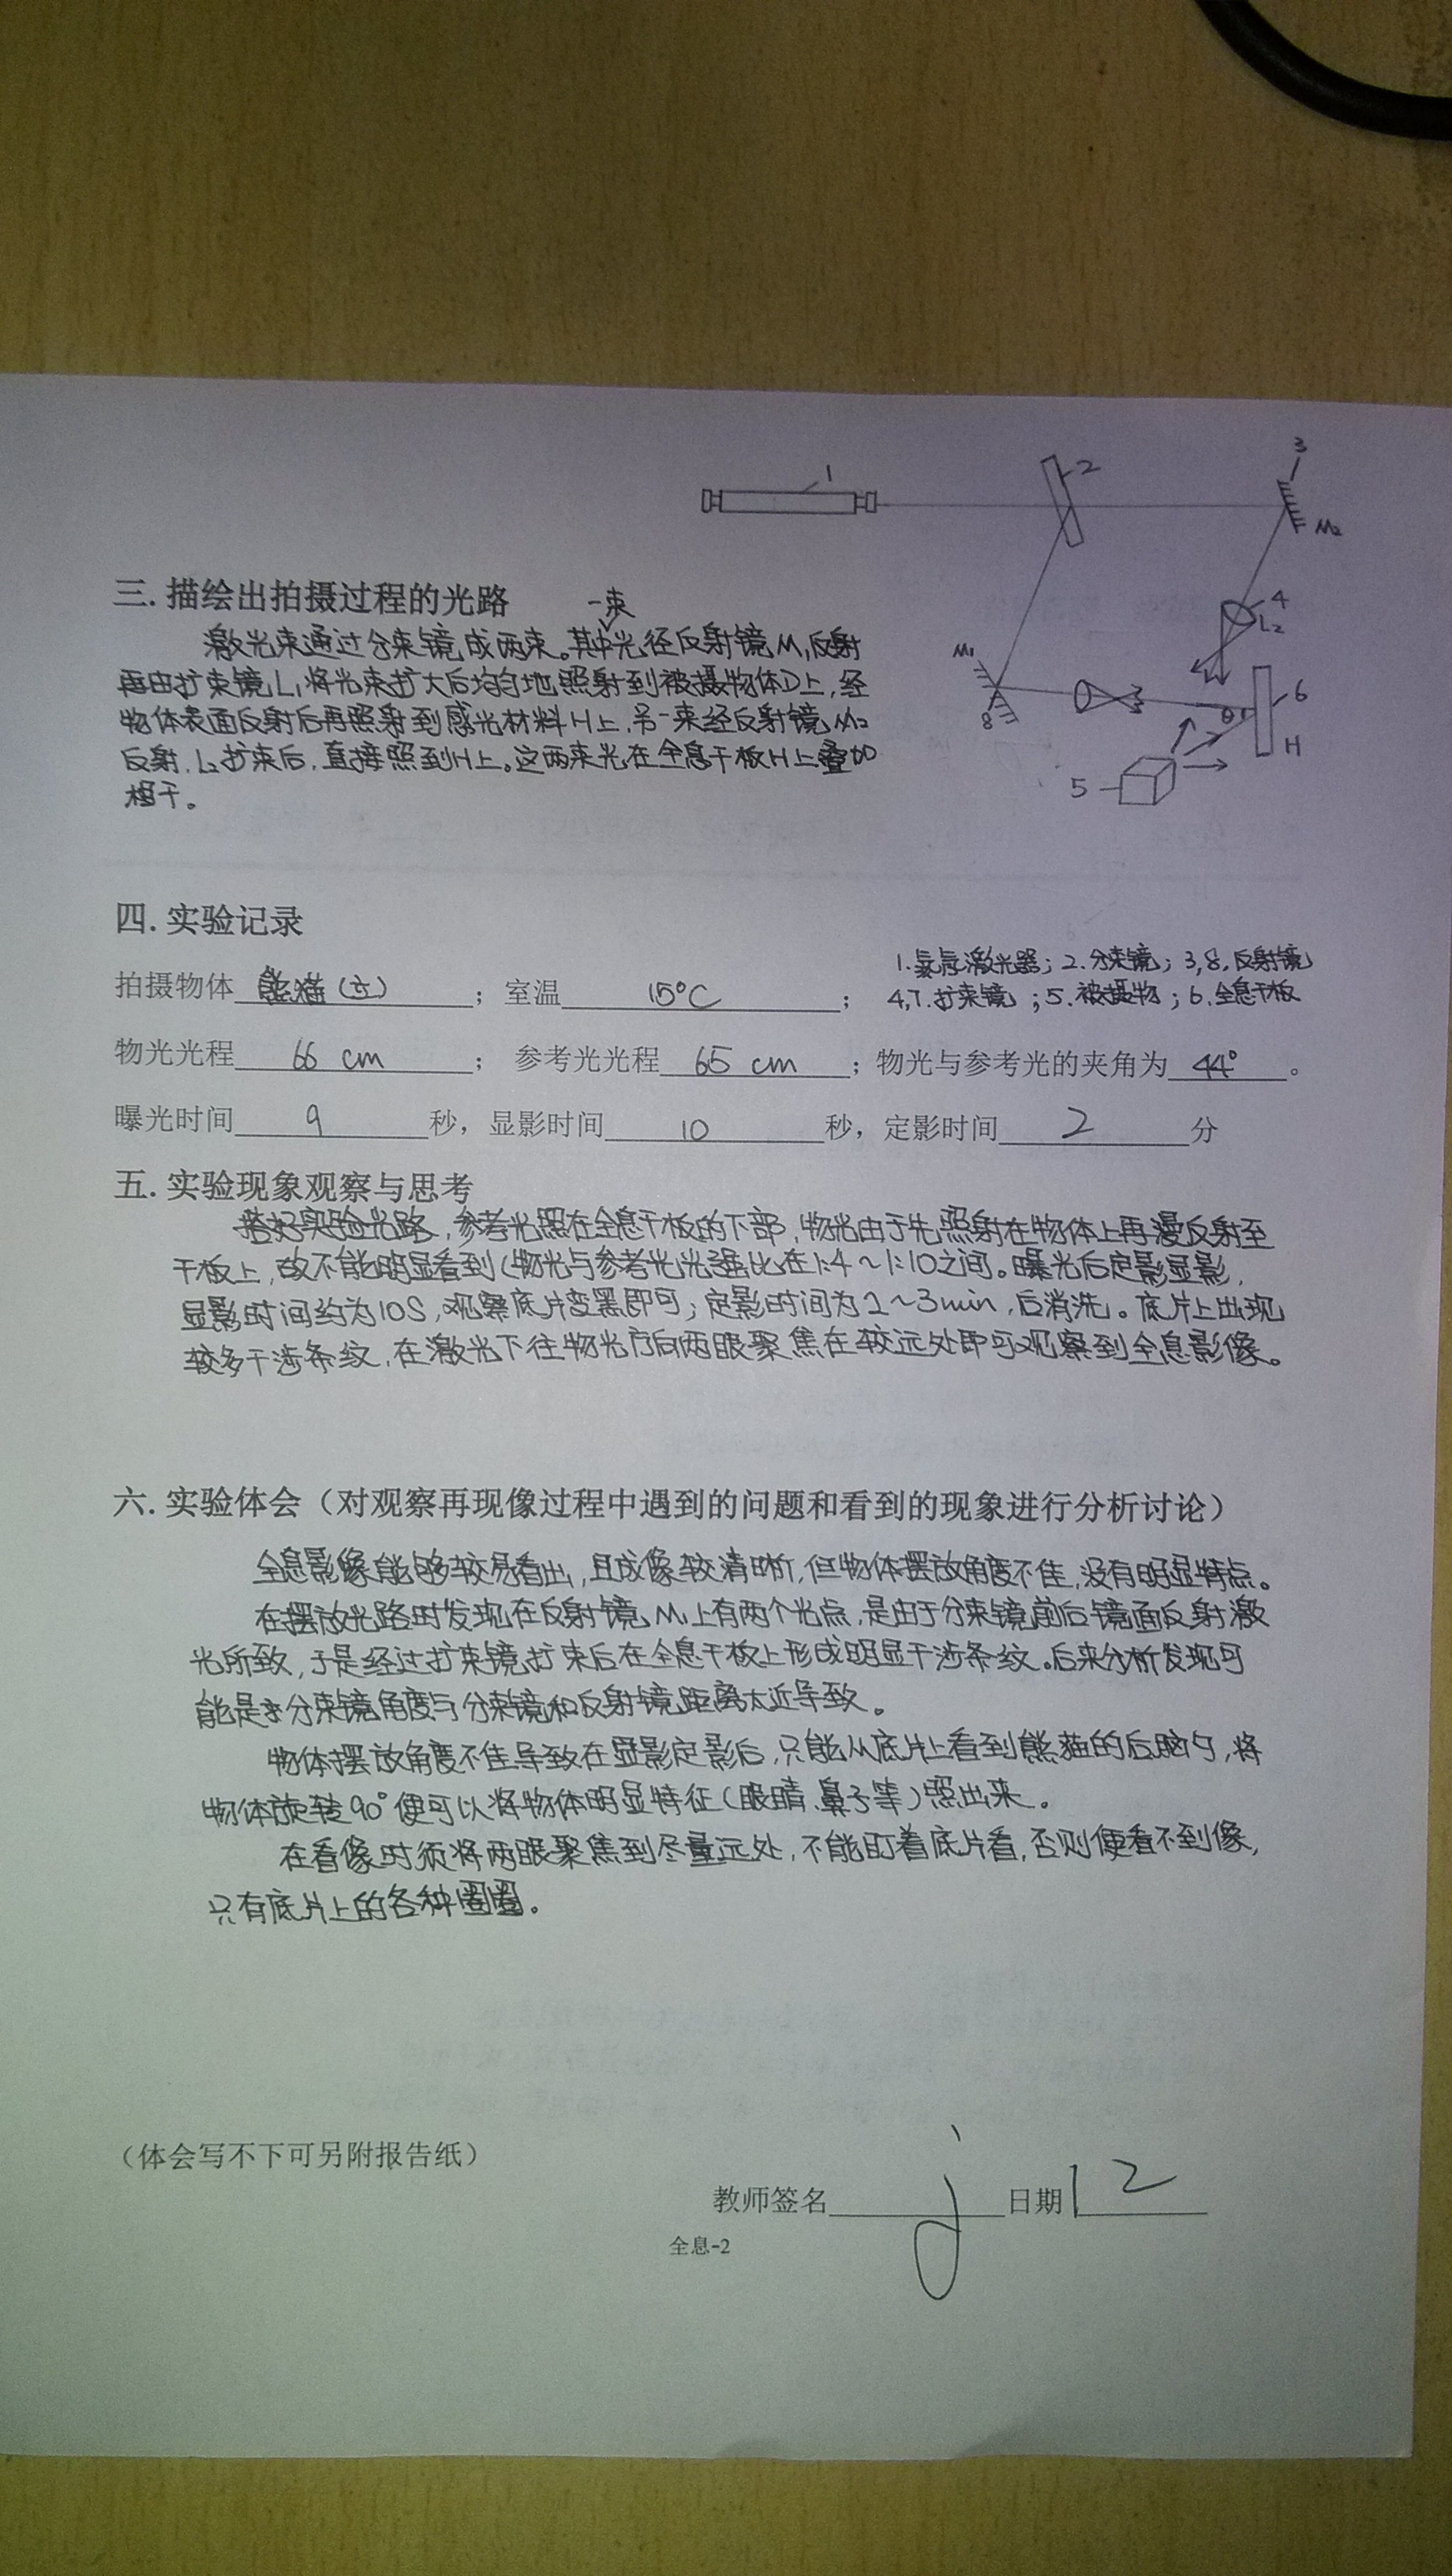 1
2
3
M2
三.描绘出拍摄过程的光路
一束
激光束通过分束镜成两束。其中光径反射镜M1反射
再由扩束镜L1将光束扩大后均匀地照射到被摄物体D上,经
物体表面反射后再照射到感光材料H上,另一束经反射镜M2
反射,L2扩束后,直接照到H上。这两束光在全息干板H上叠加
相干。
4
L2
M1
8
θ
6
H
5
四.实验记录
1.氦氖激光器;2.分束镜;3,8.反射镜
4,7.扩束镜;5.被摄物;6.全息干板
拍摄物体 熊猫(立);室温 15°C;
物光光程 66 cm;参考光光程 65 cm;物光与参考光的夹角为 44°。
曝光时间 9 秒,显影时间 10 秒,定影时间 2 分
五.实验现象观察与思考
搭好实验光路,参考光照在全息干板的下部,物光由于先照射在物体上再漫反射至
干板上,故不能明显看到(物光与参考光光强比在1:4~1:10之间。曝光后定影显影,
显影时间约为10S,观察底片变黑即可;定影时间为2~3min,后消洗。底片上出现
较多干涉条纹,在激光下往物光方向两眼聚焦在较远处即可观察到全息影像。
六.实验体会(对观察再现像过程中遇到的问题和看到的现象进行分析讨论)
全息影像能够较易看出,且成像较清晰,但物体摆放角度不佳,没有明显特点。
在摆放光路时发现在反射镜M1上有两个光点,是由于分束镜前后镜面反射激
光所致,于是经过扩束镜扩束后在全息干板上形成明显干涉条纹。后来分析发现可
能是分束镜角度与分束镜和反射镜距离太近导致。
物体摆放角度不佳导致在显影定影后,只能从底片上看到熊猫的后脑勺,将
物体旋转90°便可以将物体明显特征(眼睛、鼻子等)照出来。
在看像时须将两眼聚焦到尽量远处,不能盯着底片看,否则便看不到像,
只有底片上的各种圈圈。
(体会写不下可另附报告纸)
教师签名 日期 12
全息-2